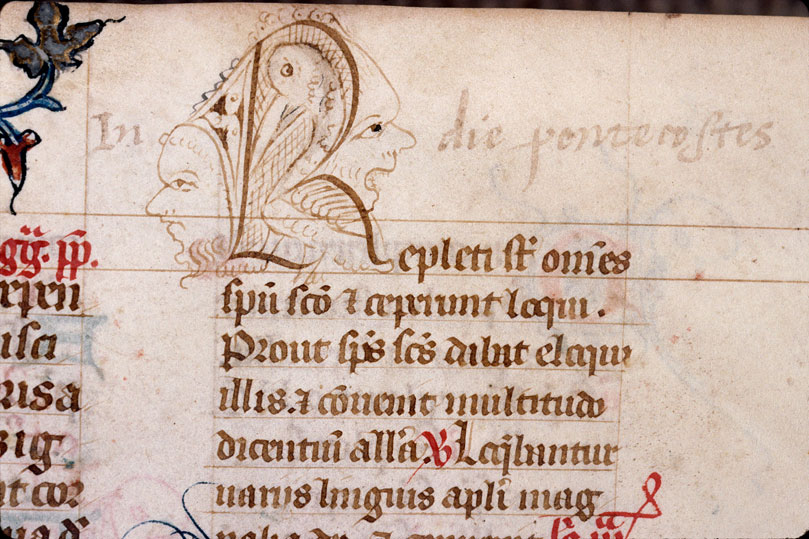 In die pentecostes
Repleti st̄ om̄es
spū scō ⁊ ceperunt loqui.
Prout sp̄s sc̄s dabat eloqui
illis. ⁊ cōuenit multitudo
dicentiū all̄a ℣ Loq̄bantur
uarijs linguis apl̄i mag
gḡ. pp̄.
isci
zig
nt cor